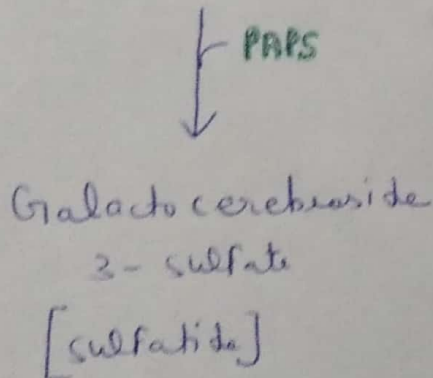 PAPS
Galactocerebroside
3 - sulfate
[sulfatide]